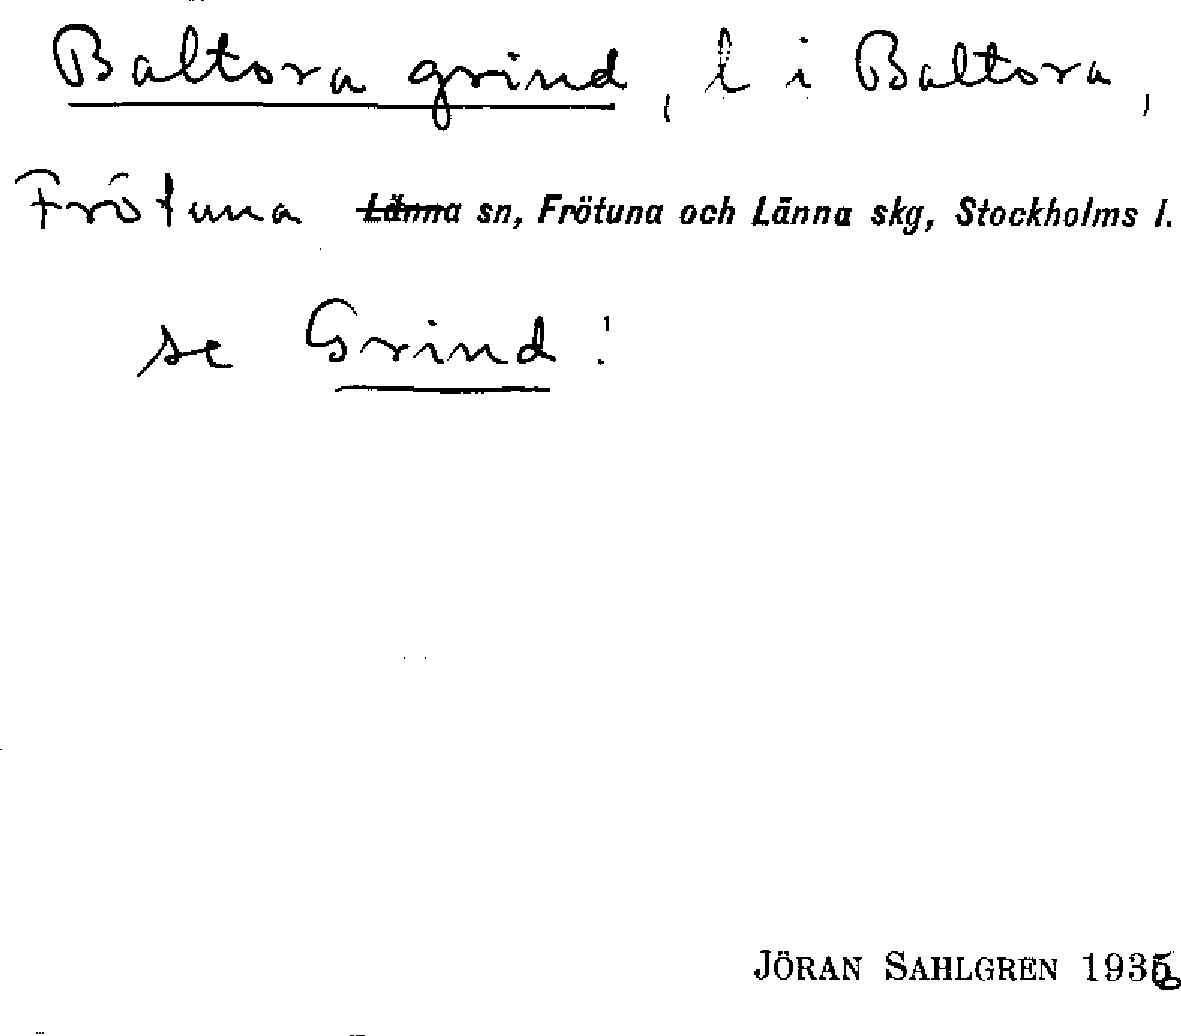 Baltora grind, l i Baltora,
Frötuna Länna sn, Frötuna och Länna skg, Stockholms l.
se Grind!
JÖRAN SAHLGREN 1936